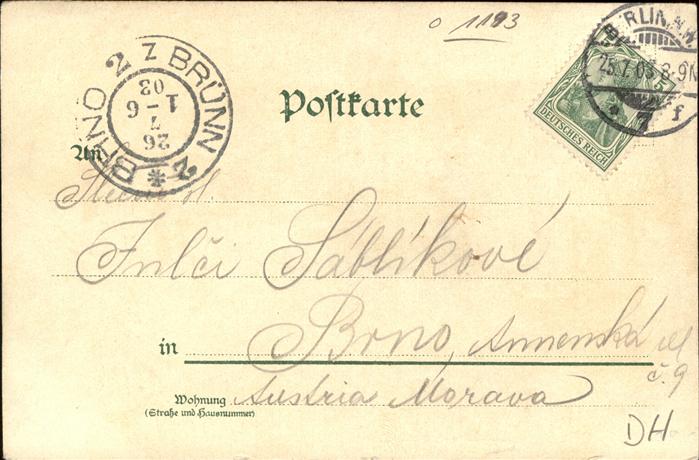 0 1193
BERLIN.N.W
25.7.03.8-9N
f
5
DEUTSCHES REICH
BRNO 2 Z BRÜNN 2
26
7
1-6
03
Postkarte
An
Julči Sáblíkové
in Brno, Annenská ul
č. 9
Wohnung Austria Morava
(Straße und Hausnummer)
DH